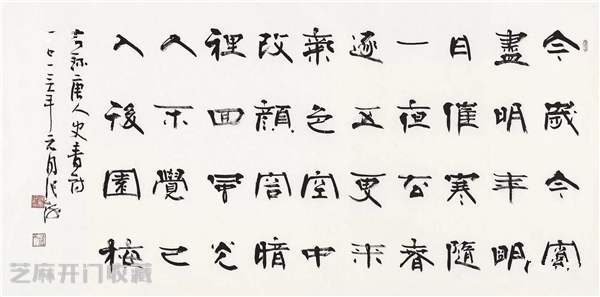 今歲今宵
盡明年明
日催寒隨
一夜去春
逐五更来
氣色空中
改顏容暗
裡回風光
人不覺已
入後園梅
唐人史青詩
三年元月张海
芝麻开门收藏